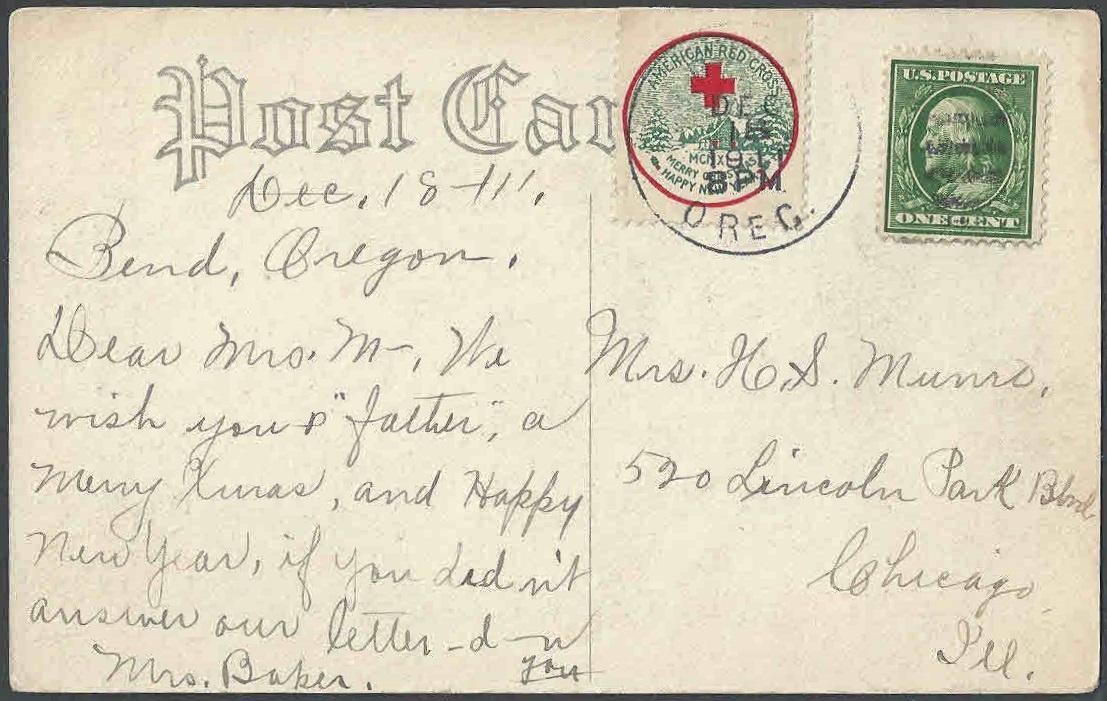 Post Car
AMERICAN RED CROSS
MERRY
HAPPY NEW
DEC
1911
8PM
OREG.
U.S. POSTAGE
ONE CENT
Dec. 18-11.
Bend, Oregon.
Dear Mrs. M-, We
wish you & "father", a
Merry Xmas, and Happy
New Year, if you did n't
answer our letter-d-n
you
Mrs. Baker.
Mrs. H. S. Munro,
520 Lincoln Park Blvd
Chicago
Ill.